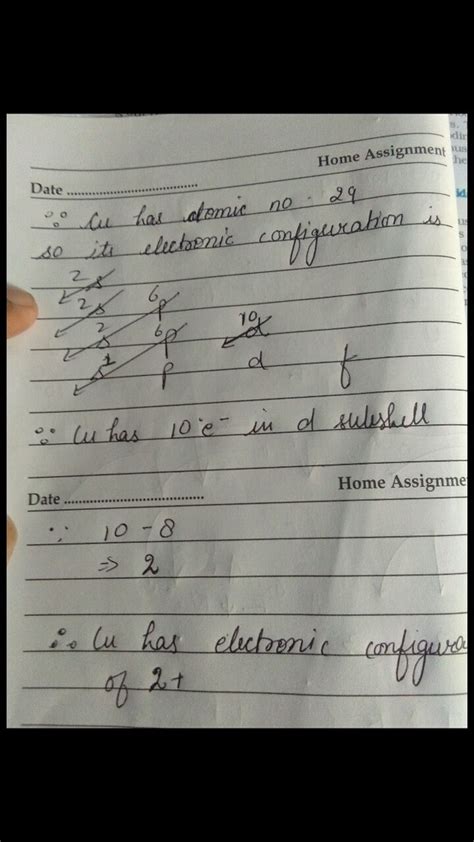 Home Assignment
Date ....................................
∵ Cu has atomic no. 29
so its electronic configuration is
2 s
2 s 6 p
2 s 6 p 10 d
1 s p d f
∵ Cu has 10 e⁻ in d subshell
Home Assignme
Date ....................................
∵ 10 - 8
⇒ 2
∴ Cu has electronic configura
of 2+